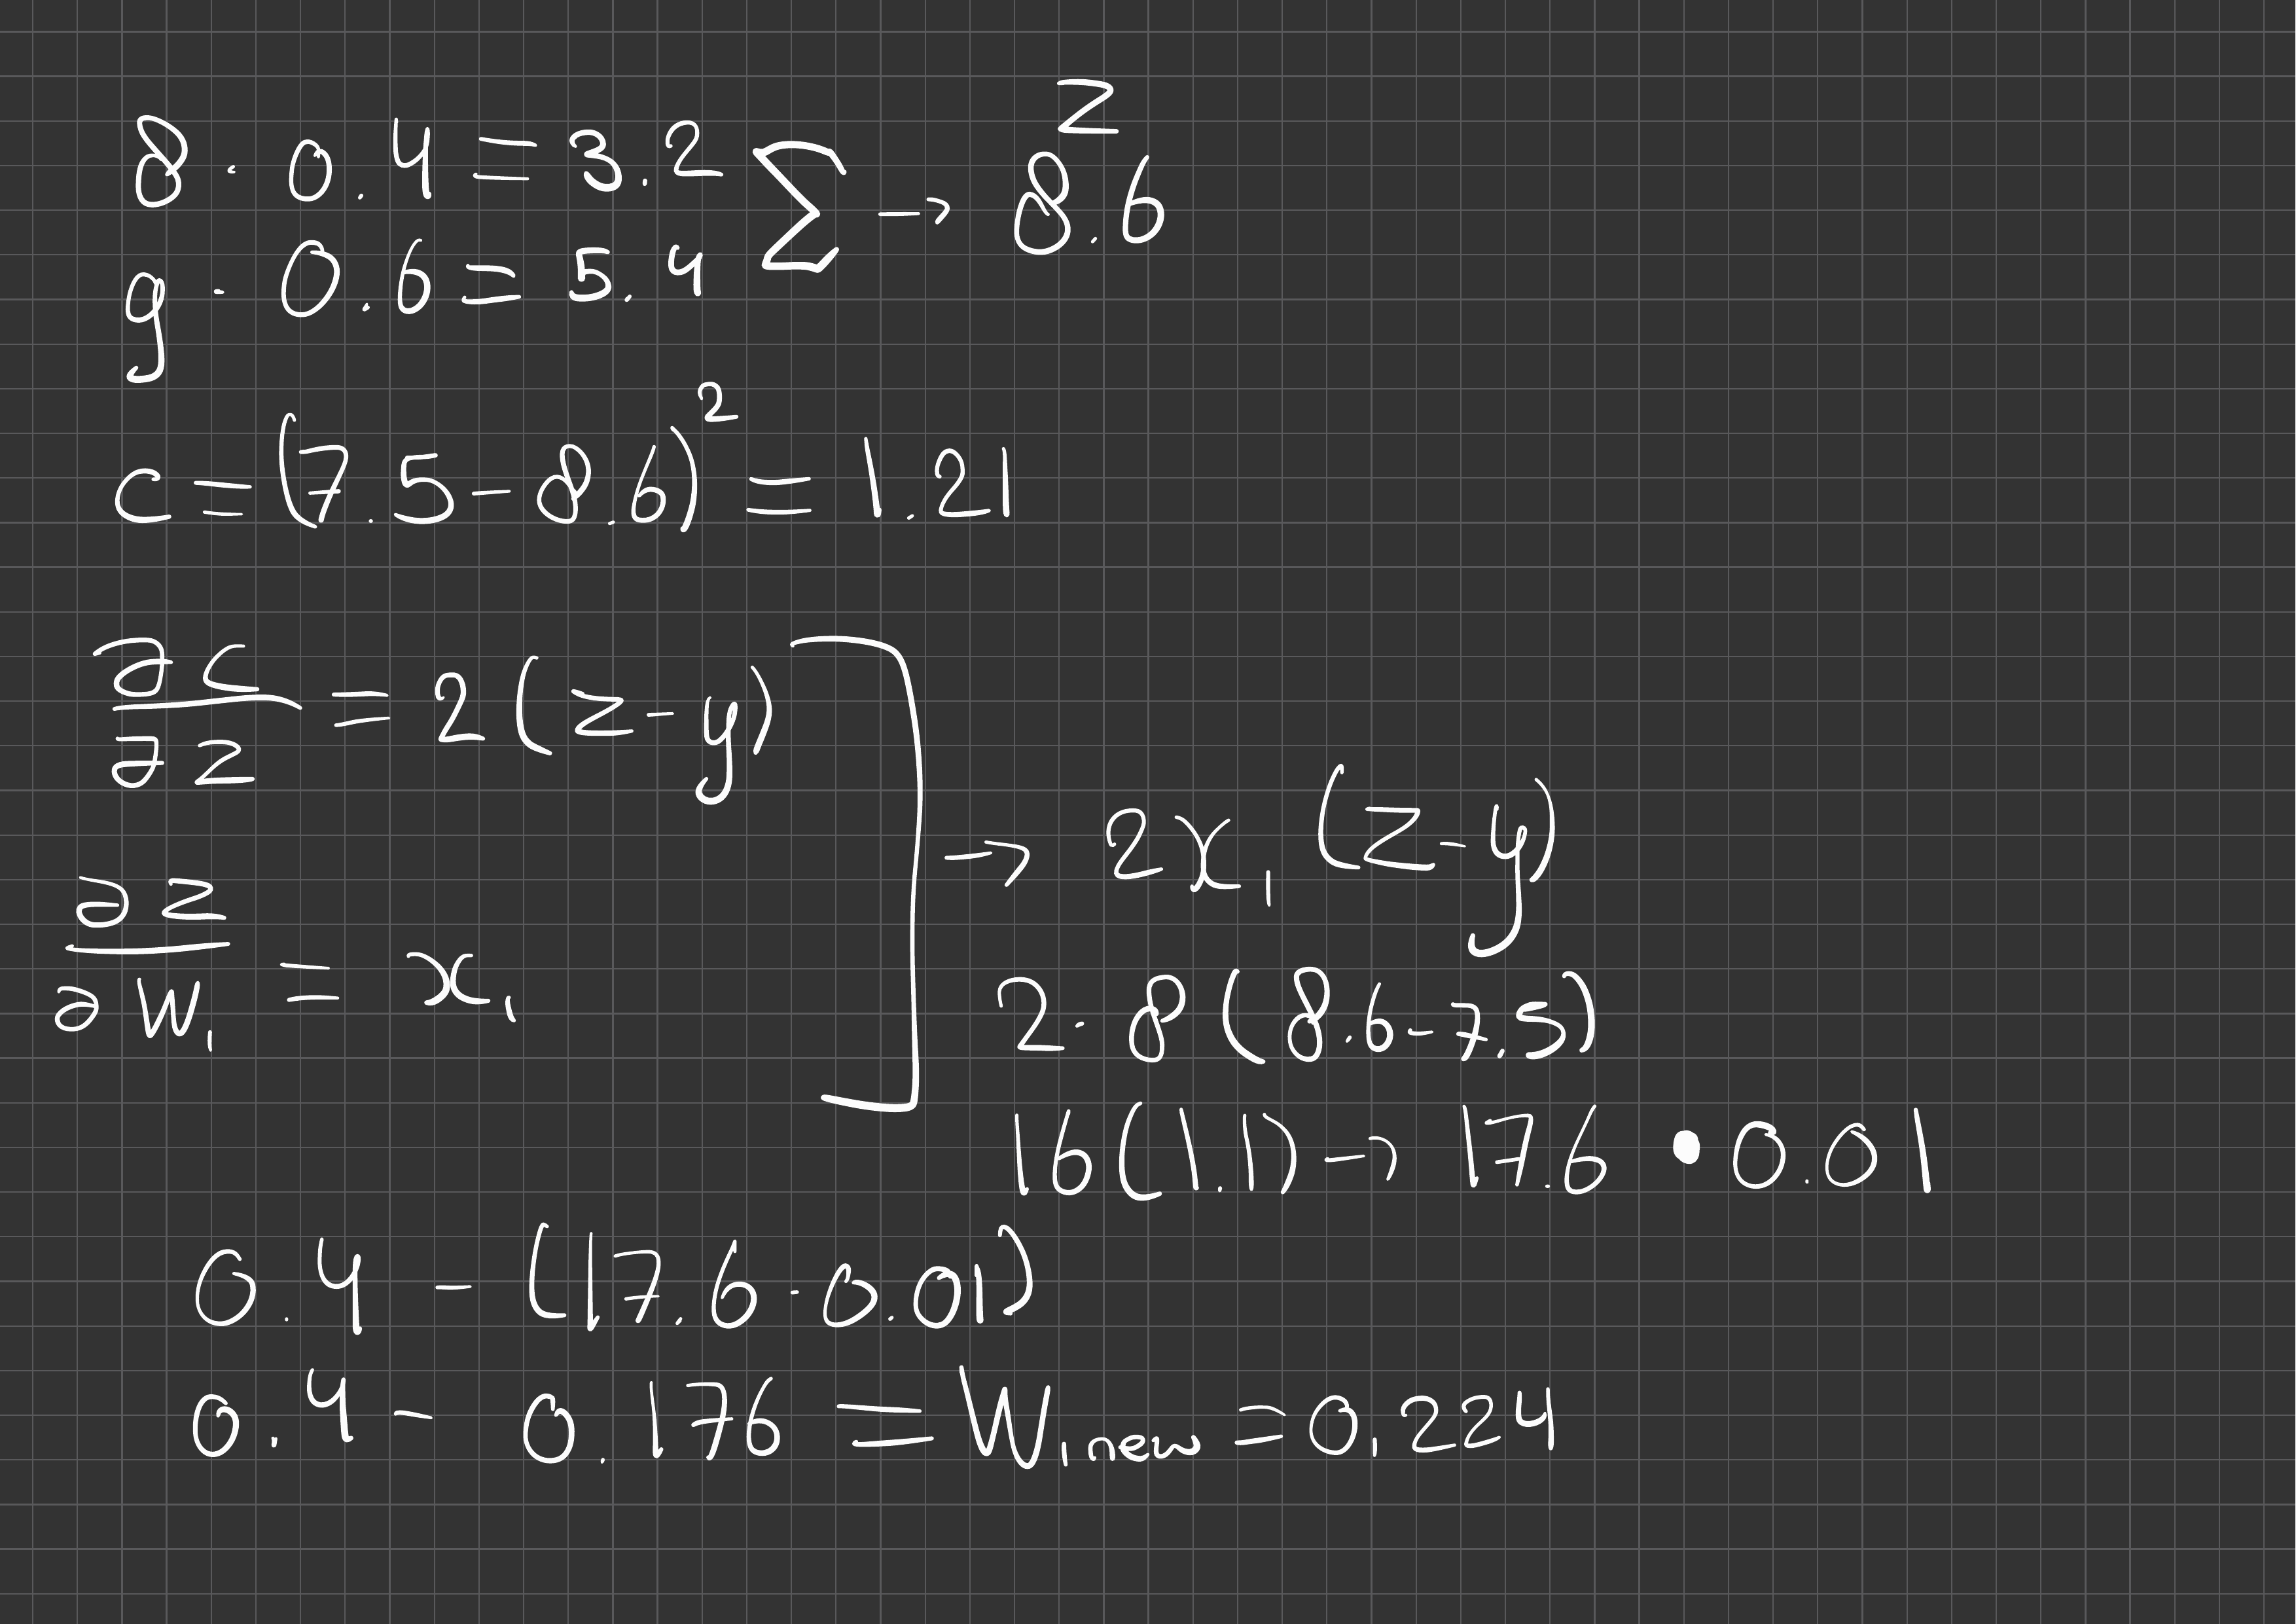 z
8 · 0.4 = 3.2 ∑ → 8.6
9 · 0.6 = 5.4
C = (7.5 - 8.6)² = 1.21
∂C/∂z = 2(z - y)
→ 2x₁(z - y)
∂z/∂w₁ = x₁
2 · 8(8.6 - 7.5)
16(1.1) → 17.6 • 0.01
0.4 - (17.6 · 0.01)
0.4 - 0.176 = W₁new = 0.224